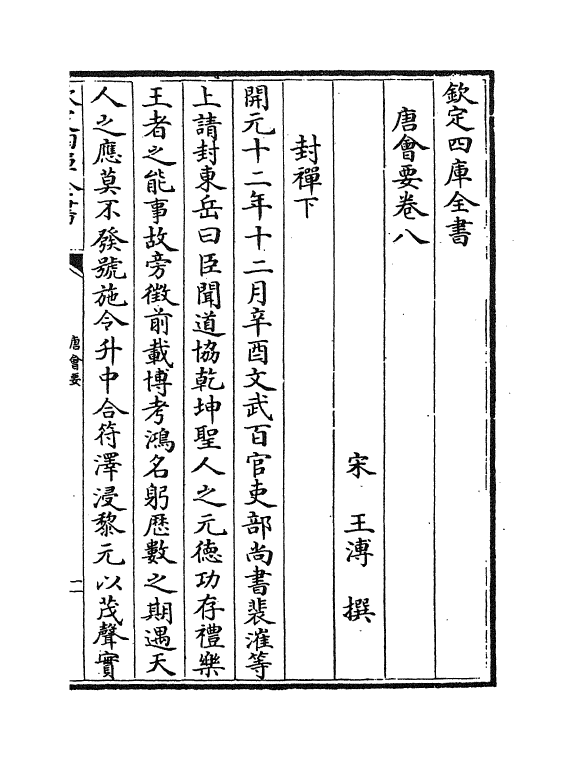 欽定四庫全書
唐會要卷八
宋 王溥 撰
封禪下
開元十二年十二月辛酉文武百官吏部尚書裴漼等
上請封東岳曰臣聞道協乾坤聖人之元德功存禮樂
王者之能事故旁徵前載博考鴻名躬歴數之期遇天
人之應莫不發號施令升中合符澤浸黎元以茂聲實
唐會要